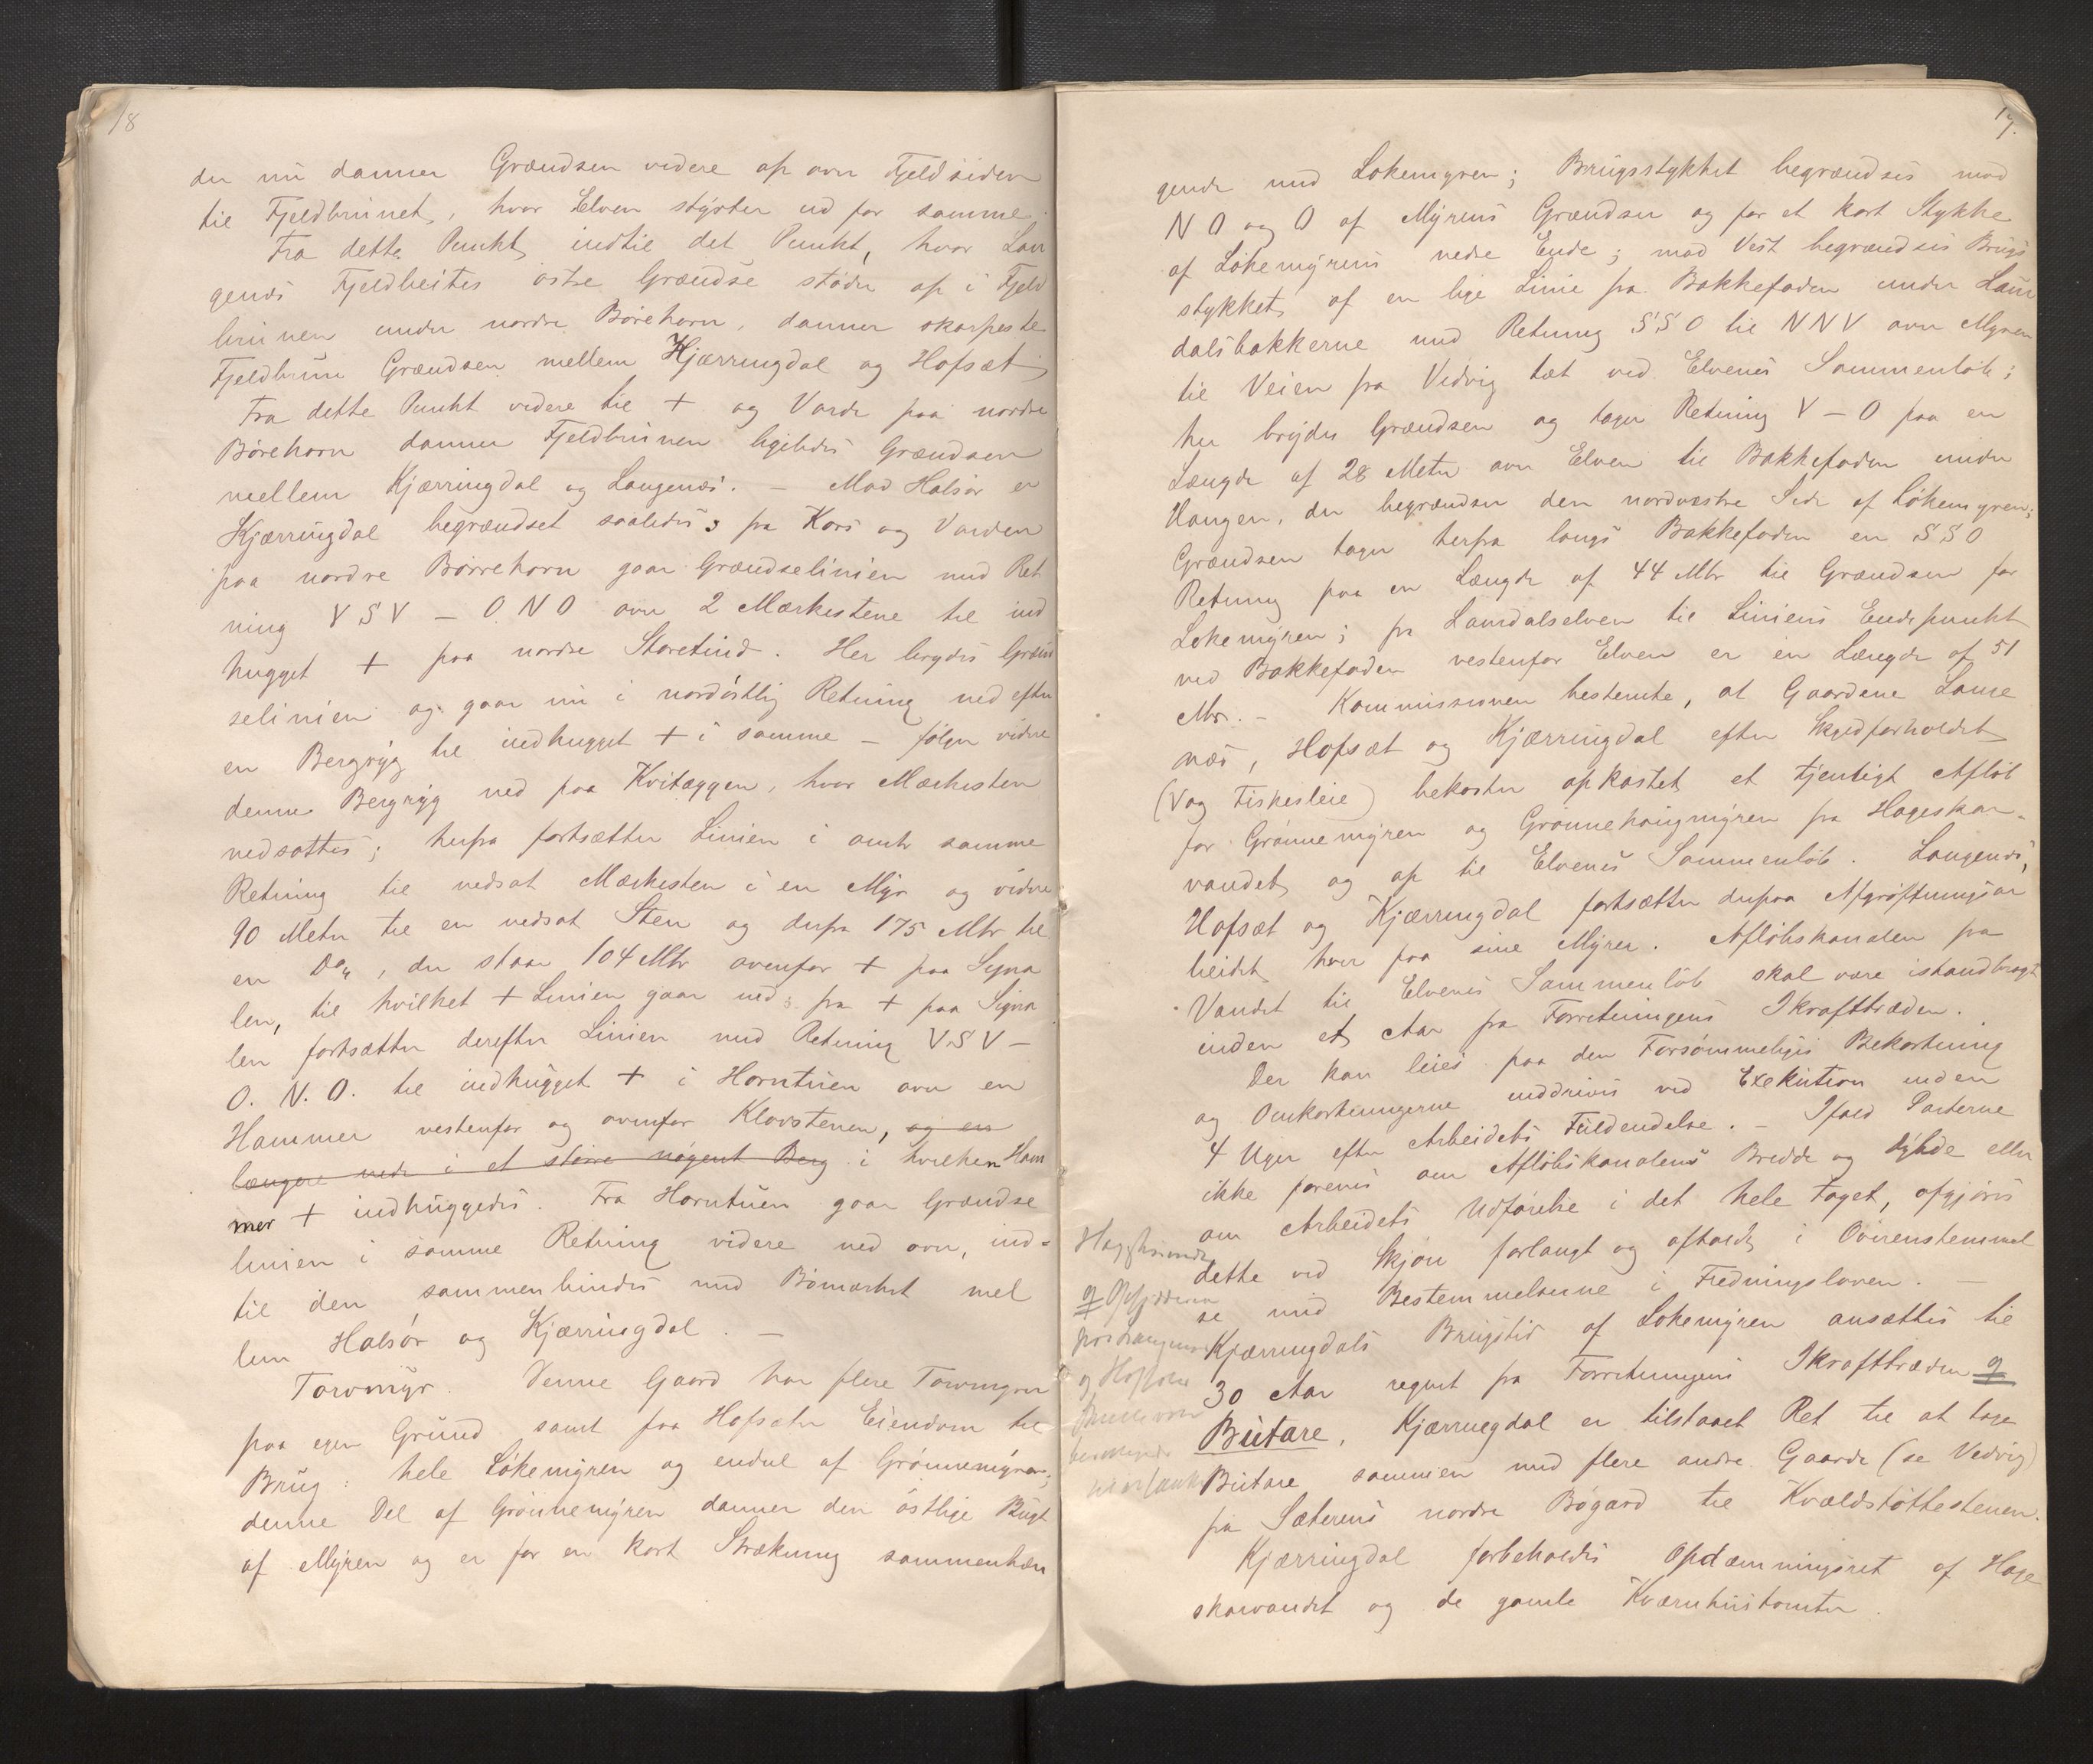 18
der nu danner Grændsen videre op over Fjeldsiden
til Fjeldbrunet, hvor Elven styrter ud for samme.
Fra dette Punkt indtil det Punkt, hvor Lan
genæs Fjeldbeites østre Grændse støder op i Fjeld
brunen under nordre Børehorn, danner skarpeste
Fjeldbrun Grændsen mellem Kjærringdal og Hofsæt;
Fra dette Punkt videre til + og Varde paa nordre
Børehorn danner Fjeldbrunen ligeledes Grændsen
mellem Kjærringdal og Langenæs. – Mod Halsør er
Kjærringdal begrændset saaledes: fra Kors og Varden
paa nordre Børrehorn gaar Grændselinien med Ret
ning VSV – O.N O over 2 Mærkestene til ind
hugget + paa nordre Storetind. Her brydes Grænd
selinien og gaar nu i nordøstlig Retning ned efter
en Bergryg til indhugget + i samme – følger videre
denne Bergryg ned paa Kvitæggen, hvor Mærkesten
nedsattes; herfra fortsætter Linien i omtr samme
Retning til nedsat Mærkesten i en Myr og videre
90 Meter til en nedsat Sten og derfra 175 Mtr til
en Do, der staar 104 Mtr ovenfor + paa Signa
len, til hvilket + Linien gaar ned; fra + paa Signa
len fortsætter derefter Linien med Retning VSV –
O. N. O. til indhugget + i Horntuen over en
Hammer vestenfor og ovenfor Klovstenen, og en
længere nede i et større nøgent Berg i hvilken Ham
mer + indhuggedes. Fra Horntuen gaar Grændse
linien i samme Retning videre ned over, ind-
til den sammenbindes med Bømærket mel
lem Halsør og Kjærringdal. –
Torvmyr. Denne Gaard har flere Torvmyrer
paa egen Grund samt paa Hofsæter Eiendom til
Brug: hele Løkemyren og endel af Grønnemyren;
denne Del af Grønnemyren danner den østlige Bugt
af Myren og er for en kort Strækning sammenhæn
17.
gende med Løkemyren; Brugsstykket begrændses mod
N O og O af Myrens Grændser og for et kort Stykke
af Løkemyrens nedre Ende; mod Vest begrændses Brugs
stykket af en lige Linie fra Bakkefoden under Lam
dalsbakkerne med Retning SSO til NNV over Myren
til Veien fra Vedvig tæt ved Elvenes Sammenløb;
her brydes Grændsen og tager Retning V – O paa en
Længde af 28 Meter over Elven til Bakkefoden under
Haugen, der begrændser den nordvestre Side af Løkemyren;
Grændsen tager herfra langs Bakkefoden en SSO
Retning paa en Længde af 44 Mtr til Grændsen for
Løkemyren; fra Lamdalselven til Liniens Endepunkt
ved Bakkefoden vestenfor Elven er en Længde af 51
Mtr. – Kommissionen bestemte, at Gaardene Lange
næs, Hofsæt og Kjærringdal efter Skyldforholdet
(Vag Fiskesleie) bekoster opkastet et tjenligt Afløb
for Grønnemyren og Grønnehaugmyren fra Hageskar-
vandet og op til Elvenes Sammenløb. Langenæs,
Hofsæt og Kjærringdal fortsætter derpaa Afgrøftningsar
beidet hver paa sine Myrer. Afløbskanalen fra
Vandet til Elvenes Sammenløb skal være istandbragt
inden et Aar fra Forretningens Ikrafttræden.
Der kan leies paa den Forsømmeliges Bekostning
og Omkostningerne inddrives ved Exekution inden
4 Uger efter Arbeidets Fuldendelse. – Ifald Parterne
ikke forenes om Afløbskanalens Bredde og Dybde eller
om Arbeidets Udførelse i det hele taget, afgjøres
dette ved Skjøn forlangt og afholdt i Overensstemmel
se med Bestemmelserne i Fredningsloven. –
Kjærringdals Brugstid af Løkemyren ansættes til
30 Aar regnet fra Forretningens Ikrafttræden
Butare. Kjærringdal er tilstaaet Ret til at tage
Butare sammen med flere andre Gaarde (se Vedvig)
fra Sæterens nordre Bøgard til Kvældstøttestenen.
Kjærringdal forbeholdes Opdæmningsret af Hage
skarvandet og de gamle Kværnhustomter.